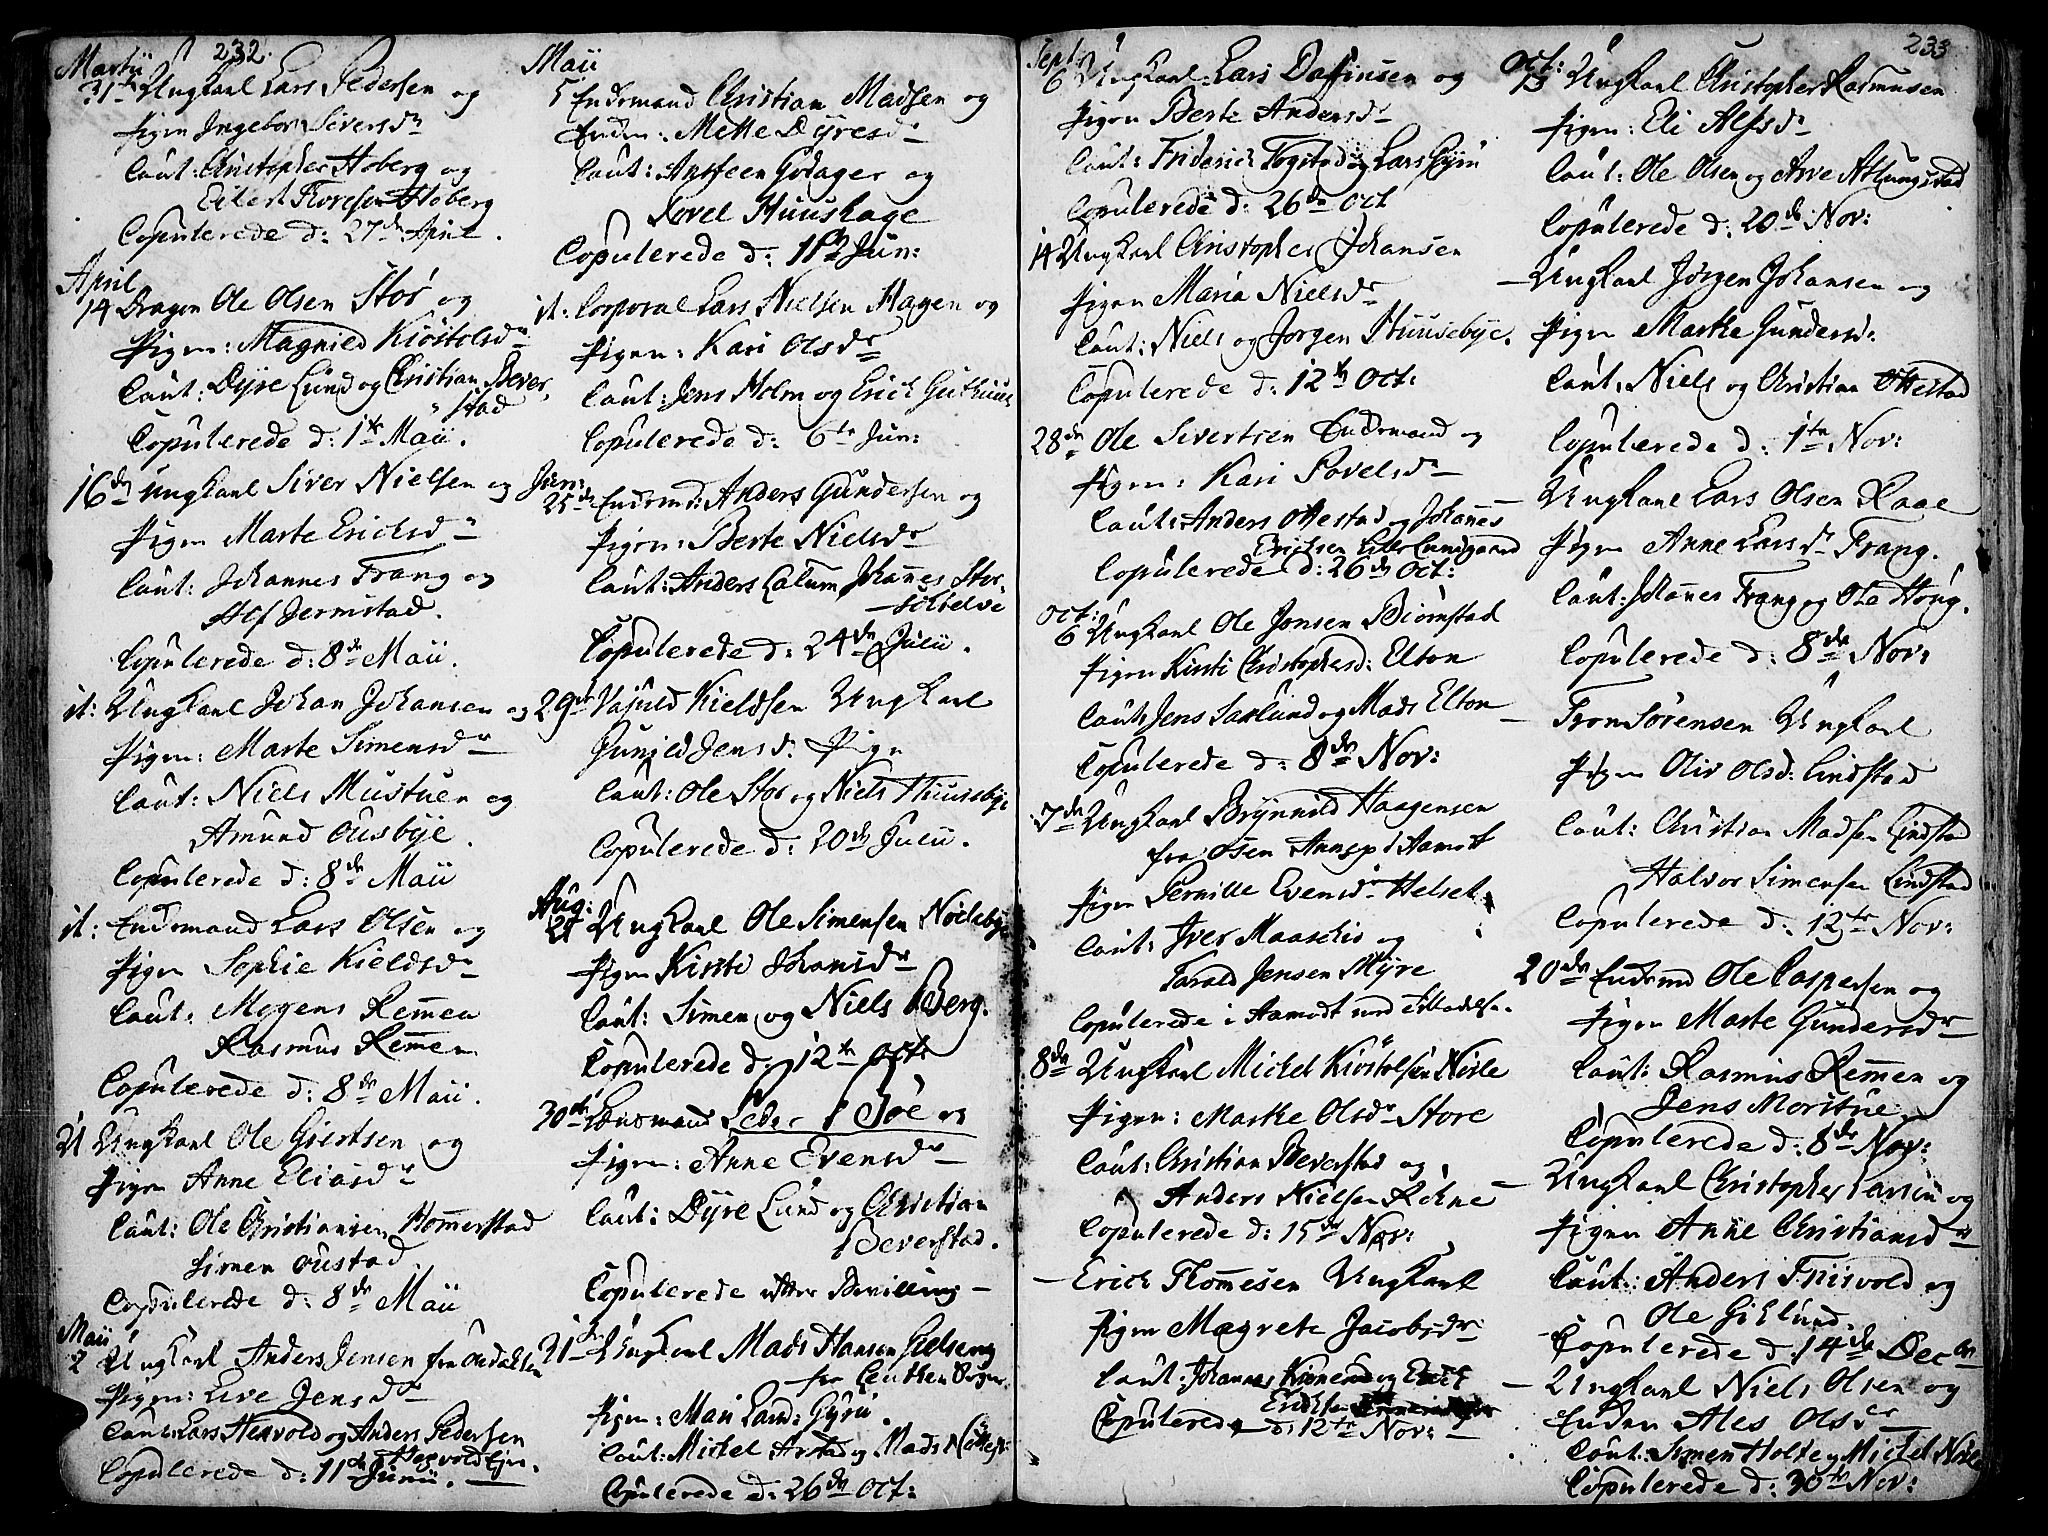 232.
Martii
31te Ungkarl Lars Pedersen og
Pigen Ingebor Siversdr
Caut: Christopher Hoberg og
Eilert Thoresen Hoberg
Copulerede d: 27de April.
April
14 Dragon Ole Olsen Stor og
Pigen: Magnild Kiøstelsdr
Caut: Dyre Lund og Christian Bever
stad
Copulerede d: 1te Maii.
16de Ungkarl Siver Nielsen og
Pigen Marte Erichsdr
Caut: Johannes Frang og
Alf Jermstad.
Copulerede d: 8de Maii.
it: Ungkarl Johan Johansen og
Pigen: Marte Simensdr
Caut: Niels Mustuen og
Amund Ousbye.
Copulerede d: 8de Maii
it: Enckemand Lars Olsen og
Pigen Sophie Kieldsdr
Caut: Mogens Remmen
Rasmus Remmen
Copulerede d: 8de Maii.
21 Ungkarl Ole Giertsen og
Pigen Anne Eliasdr
Caut: Ole Christiansen Hommerstad
Simen Oustad.
Copulerede d: 8de Maii
Maii
2 Ungkarl Anders Jensen fra Odalen
Pigen: Live Jensdr
Caut: Lars Hernvold og Anders Pedersen
Hagvold Ejer.
Copulerede d: 11de Junii.
Maii
5 Enckemand Christian Madsen og
Encken: Mette Dyresdr
Caut: Anfeen Godager og
Povel Huushage
Copulerede d: 112 Jun:
it: Corporal Lars Nielsen Hagen og
Pigen: Kari Olsdr
Caut: Jens Holm og Erich Guthuus
Copulerede d: 6te Jun:
Jun:
25de Enckemd: Anders Gundersen og
Pigen: Berte Nielsdr
Caut: Anders Calum Johannes Stor
Copulerede d: 24de Julii.
29de Kieldsen Ungkarl
Gunild Jensdr. Pige
Caut: Ole Stor og Niels Huusebye
Copulerede d: 20de Julii.
Aug:
21 Ungkarl Ole Simensen Nødsbye
Pigen Kirsti Johansdr
Caut: Simen og Niels Berg.
Copulerede d: 12te Oct:
30de Enckemand Peder Bøe og
Pigen: Anne Evensdr
Caut: Dyre Lund og Christian
Beverstad.
Copulerede efter Bevilling
21 Ungkarl Mads Hansen Gielseng
fra Leuthen Sogn
Pigen: Mari Land: Gyrii.
Caut: Michel Arstad og Mads
Copulerede d: 26de Oct:
233
Septr
6 Ungkarl: Lars Dafinsen og
Pigen Berte Andersdr
Caut: Friderich Togstad og Lars Gyrii
Copulerede d: 26de Oct
14 Ungkarl Christopher Johansen
Pigen Maria Nielsdr
Caut: Niels og Jørgen Huusebye.
Copulerede d: 12te Oct:
28de Ole Sivertsen Enckemand og
Pigen: Kari Povelsdr
Caut: Anders Ottestad og Johannes
Erichsen Lille Lundgaard
Copulerede d: 26de Oct:
Oct:
6 Ungkarl Ole Jonsen Biørnstad
Pigen Kirsti Christophersd: Elton
Caut: Jens Saxlund og Mads Elton
Copulerede d: 8de Nov:
7de Ungkarl Brynnild Haagensen
fra Osen Annex i Aamodt
Pigen Pernille Evensdr Helset
Caut: Iver Maaschio og
Tarald Jensen Myre
Copulerede i Aamodt med Tilladelse.
8de Ungkarl Michel Kiøstelsen Nirle
Pigen: Marthe Olsdr Store
Caut: Christian Beverstad og
Anders Nielsen Rohne
Copulerede d: 15de Nov:
– Erich Thommesen Ungkarl
Pigen Magrete Jacobsdr
Caut: Johannes Kinnerud og Erich
Erichsen
Copulerede d: 12te Nov:
Oct:
13 Ungkarl Christopher Rasmusen
Pigen: Eli Alfsdr
Caut: Ole Olsen og Arve Atlungstad
Copulerede d: 20de Nov:
– Ungkarl Jørgen Johansen og
Pigen Marthe Gundersd:
Caut: Niels og Christian Ottestad
Copulerede d: 1te Nov:
– Ungkarl Lars Olsen Raae
Pigen Anne Larsdr Frang.
Caut: Johannes Frang og Ole Houg.
Copulerede d: 8de Nov:
– Tron Sørensen Ungkarl
Pigen Oliv Olsd: Lindstad
Caut: Christian Madsen Lindstad
Halvor Simensen Lindstad
Copulerede d: 12te Nov:
20de Enckemd Ole Caspersen og
Pigen Marte Gundersdr
Caut: Rasmus Remmen og
Jens Moestue
Copulerede d: 8de Nov:
– Ungkarl Christopher Larsen og
Pigen Anne Christiansdr
Caut: Anders Frisvold og
Ole Gieklund.
Copulerede d: 14de Decbr
– Ungkarl Niels Olsen og
Encken Ales Olsdr
Caut: Simen Holte og Michel Nirle
Copulerede d: 30te Nov: